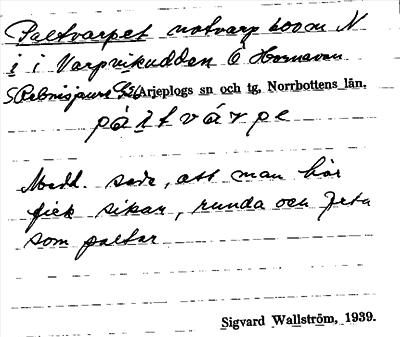 Paltvarpet notvarp 600 m N
i i Varpvikudden Ö Hornavan
S Rebnisjaure Arjeplogs sn och tg, Norrbottens län.
páltvárpe
Medd. sade, att man här
fick sikar, runda och feta
som paltar
Sigvard Wallström, 1939.